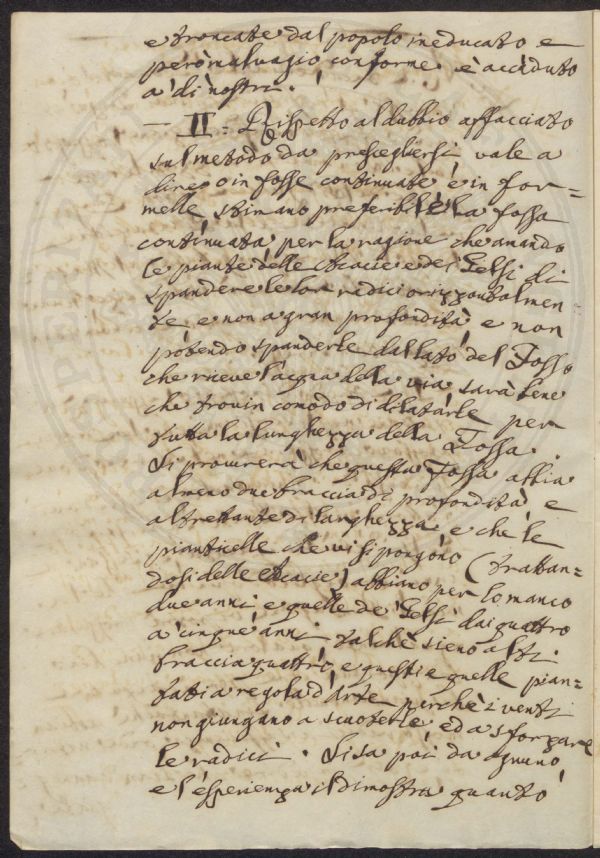 e troncate dal popolo ineducato e
però malvagio conforme è accaduto
a' dì nostri.
— II = Rispetto al dubbio affacciato
sul metodo da prescegliersi vale a
dire o in fosse continuate è in for=
melle, stimano preferibile la fossa
continuata per la ragione che amando
le piante delle Acacie e dei Gelsi di
spandere le lor radici orizzontalmen
te e non a gran profondità, e non
potendo spanderle dal lato del Fosso
che riceve l'acqua della via sarà bene
che trovin comodo di dilatarle per
tutta la lunghezza della Fossa.
Si procurerà che questa Fossa abbia
almeno due braccia di profondità, e
altrettante di larghezza e che le
pianticelle che vi si pongono (trattan=
dosi delle Acacie) abbiano per lo manco
due anni e quelle de' Gelsi dai quattro
a' cinque anni talchè sieno alti
braccia quattro, e questi e quelle pian=
tati a regola d'arte perchè i venti
non giungano a scuoterle ed a sforzare
le radici. Si sa poi da ognuno
e l'esperienza il dimostra quanto